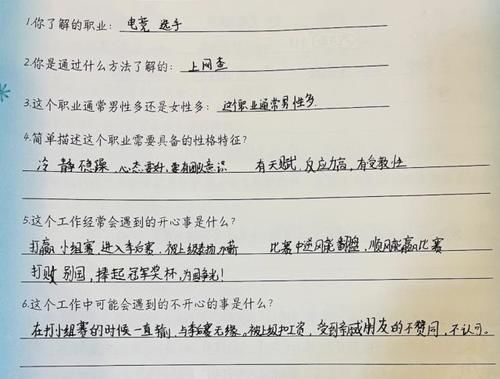 1.你了解的职业：电竞 选手
2.你是通过什么方法了解的：上网查
3.这个职业通常男性多还是女性多：这个职业通常男性多
4.简单描述这个职业需要具备的性格特征？
冷静稳操，心态要好，要有团队意识 有天赋，反应力高，有受教性
5.这个工作经常会遇到的开心事是什么？
打赢小组赛，进入季后赛，被上级 比赛中逆风能翻盘，顺风能赢比赛
打败别国，捧起冠军奖杯，为国争光！
6.这个工作中可能会遇到的不开心的事是什么？
在打小组赛的时候一直输，与季后赛无缘。被上级扣工资，受到亲戚朋友的不赞同，不认可。